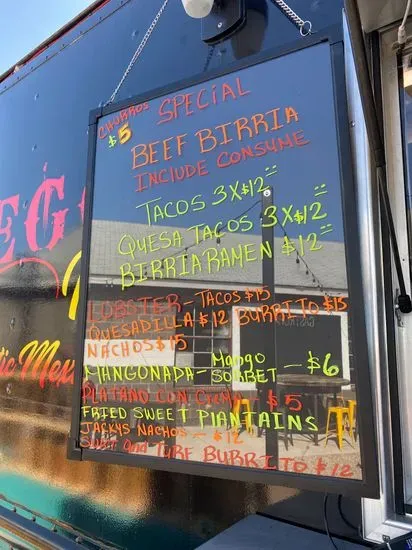 CHURROS
$5
SPECIAL
BEEF BIRRIA
INCLUDE CONSUME
TACOS 3X$12
QUESA TACOS 3X$12
BIRRIA RAMEN $12
LOBSTER - TACOS $15
QUESADILLA $12 BURRITO $15
NACHOS $15
MANGONADA - Mango
SORBET - $6
PLATANO CON CREMA - $5
FRIED SWEET PLANTAINS
JACKYS NACHOS - $12
SURF and TURF BURRITO $12
EG
tic Mex